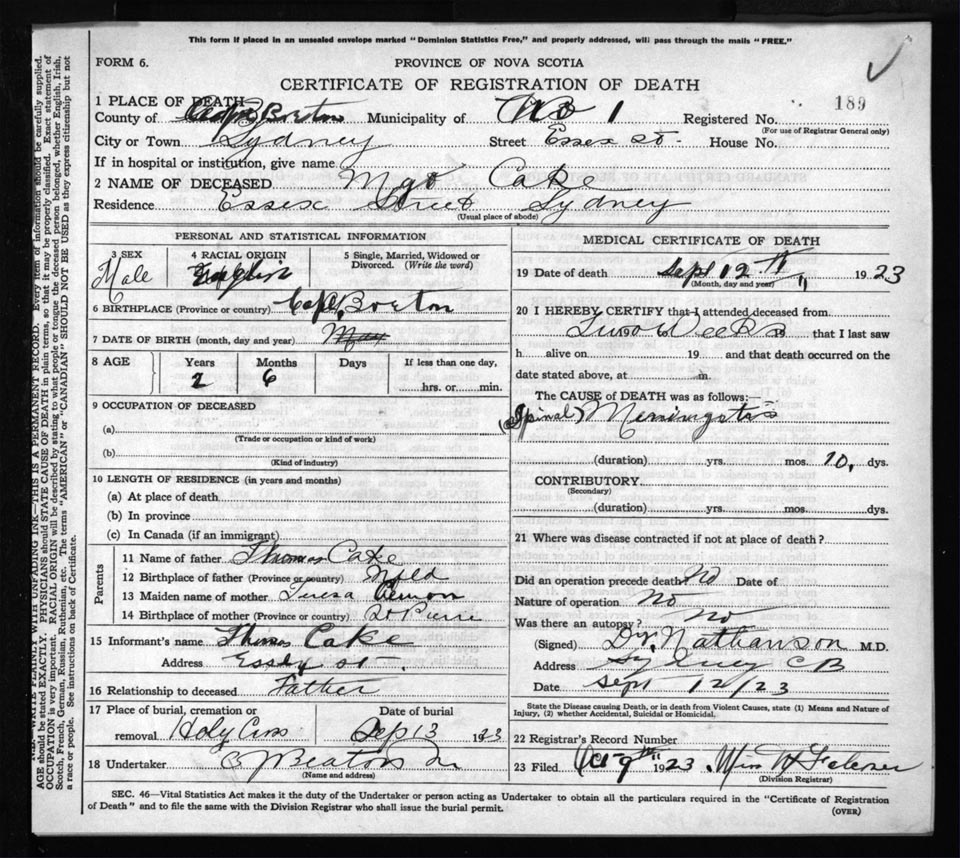 This form if placed in an unsealed envelope marked "Dominion Statistics Free," and properly addressed, will pass through the mails "FREE."
FORM 6. PROVINCE OF NOVA SCOTIA
CERTIFICATE OF REGISTRATION OF DEATH
189
1 PLACE OF DEATH
County of Cape Breton Municipality of Wd 1 Registered No.
(For use of Registrar General only)
City or Town Sydney Street Essex St. House No.
If in hospital or institution, give name
2 NAME OF DECEASED Cake
Residence Essex Street Sydney
(Usual place of abode)
PERSONAL AND STATISTICAL INFORMATION
3 SEX 4 RACIAL ORIGIN 5 Single, Married, Widowed or Divorced. (Write the word)
Male
6 BIRTHPLACE (Province or country) Cape Breton
7 DATE OF BIRTH (month, day and year)
8 AGE Years Months Days If less than one day,
2 6 hrs. or min.
9 OCCUPATION OF DECEASED
(a)
(Trade or occupation or kind of work)
(b)
(Kind of industry)
10 LENGTH OF RESIDENCE (in years and months)
(a) At place of death
(b) In province
(c) In Canada (if an immigrant)
Parents
11 Name of father Thomas Cake
12 Birthplace of father (Province or country) Nfld
13 Maiden name of mother Teresa
14 Birthplace of mother (Province or country) St Pierre
15 Informant's name Thomas Cake
Address Essex St.
16 Relationship to deceased Father
17 Place of burial, cremation or removal Holy Cross Date of burial Sep 13 1923
18 Undertaker Beaton
(Name and address)
MEDICAL CERTIFICATE OF DEATH
19 Date of death Sept 12th 1923
(Month, day and year)
20 I HEREBY CERTIFY that I attended deceased from
Two Weeks 19 that I last saw
h alive on 19 and that death occurred on the
date stated above, at m.
The CAUSE of DEATH was as follows:
(Spinal) Meningitis
(duration) yrs. mos. 10, dys.
CONTRIBUTORY
(Secondary)
(duration) yrs. mos. dys.
21 Where was disease contracted if not at place of death?
Did an operation precede death No Date of
Nature of operation No
Was there an autopsy? No
(Signed) Dr. Nathanson M.D.
Address Sydney CB
Date Sept 12/23
State the Disease causing Death, or in death from Violent Causes, state (1) Means and Nature of
Injury, (2) whether Accidental, Suicidal or Homicidal.
22 Registrar's Record Number
23 Filed 9th 1923
(Division Registrar)
SEC. 46—Vital Statistics Act makes it the duty of the Undertaker or person acting as Undertaker to obtain all the particulars required in the "Certificate of Registration
of Death" and to file the same with the Division Registrar who shall issue the burial permit. (OVER)
WRITE PLAINLY WITH UNFADING INK—THIS IS A PERMANENT RECORD. Every item of information should be carefully supplied.
AGE should be stated EXACTLY. PHYSICIANS should STATE CAUSE OF DEATH in plain terms, so that it may be properly classified. Exact statement of
OCCUPATION is very important. RACIAL ORIGIN will be described by stating to what people or tongue the deceased person belonged, whether English, Irish,
Scotch, French, German, Russian, Ruthenian, etc. The terms "AMERICAN" or "CANADIAN" SHOULD NOT BE USED as they express citizenship but not
a race or people. See instructions on back of Certificate.